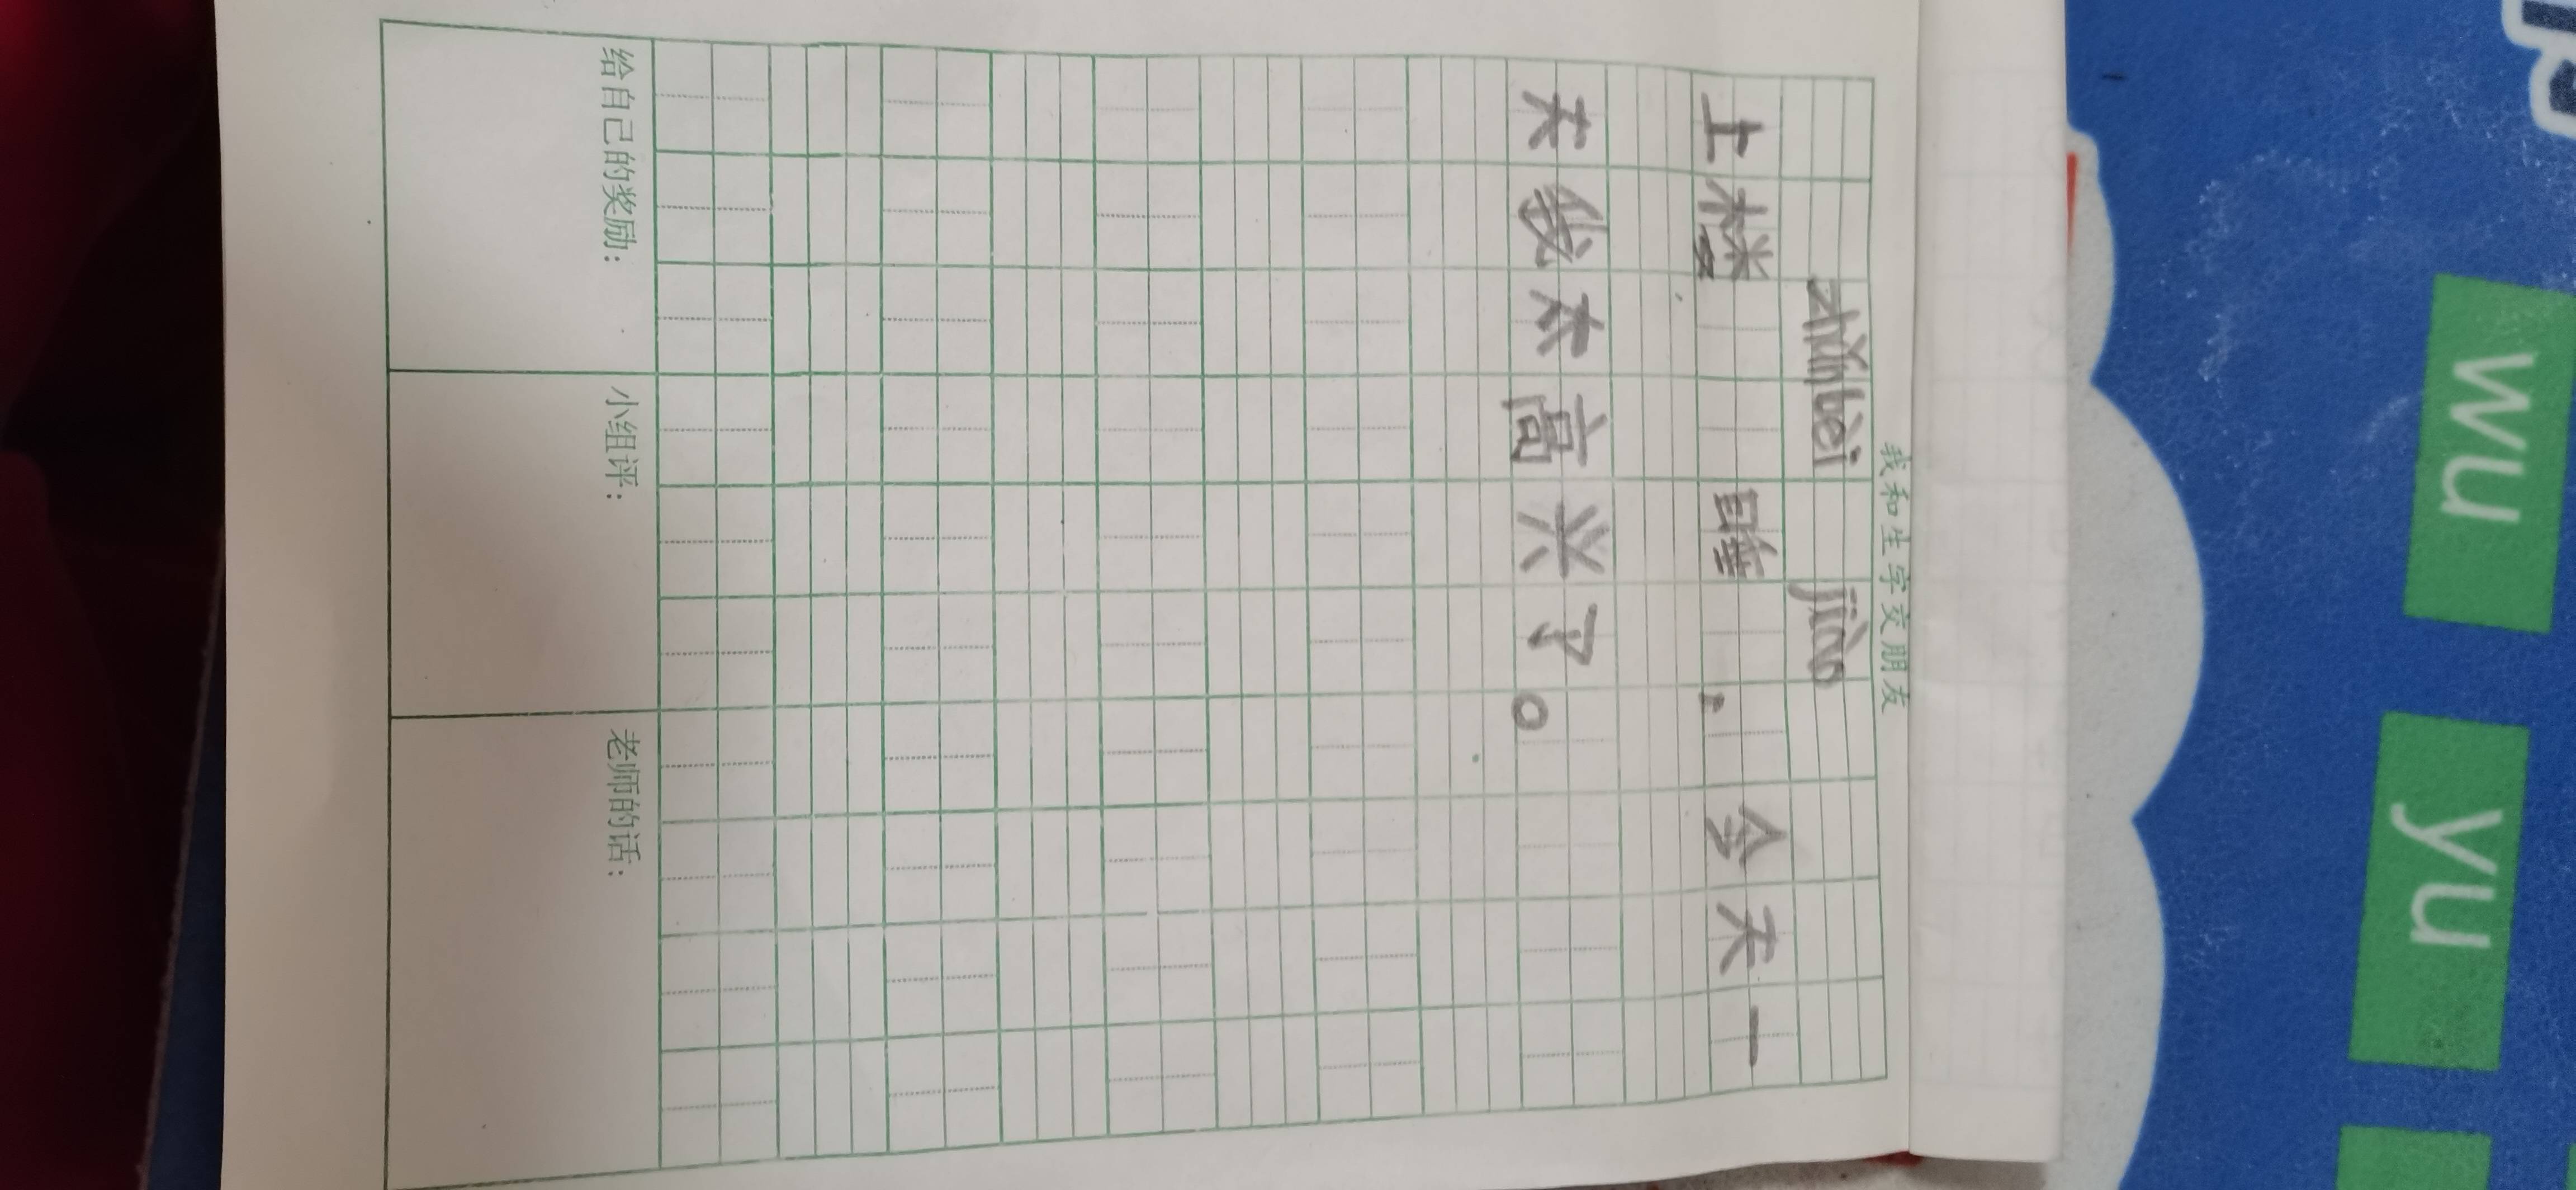 我和生字交朋友
zhǔnbèi jiào
上楼 睡 , 今天一
天我太高兴了。
给自己的奖励: 小组评: 老师的话:
wu
yu